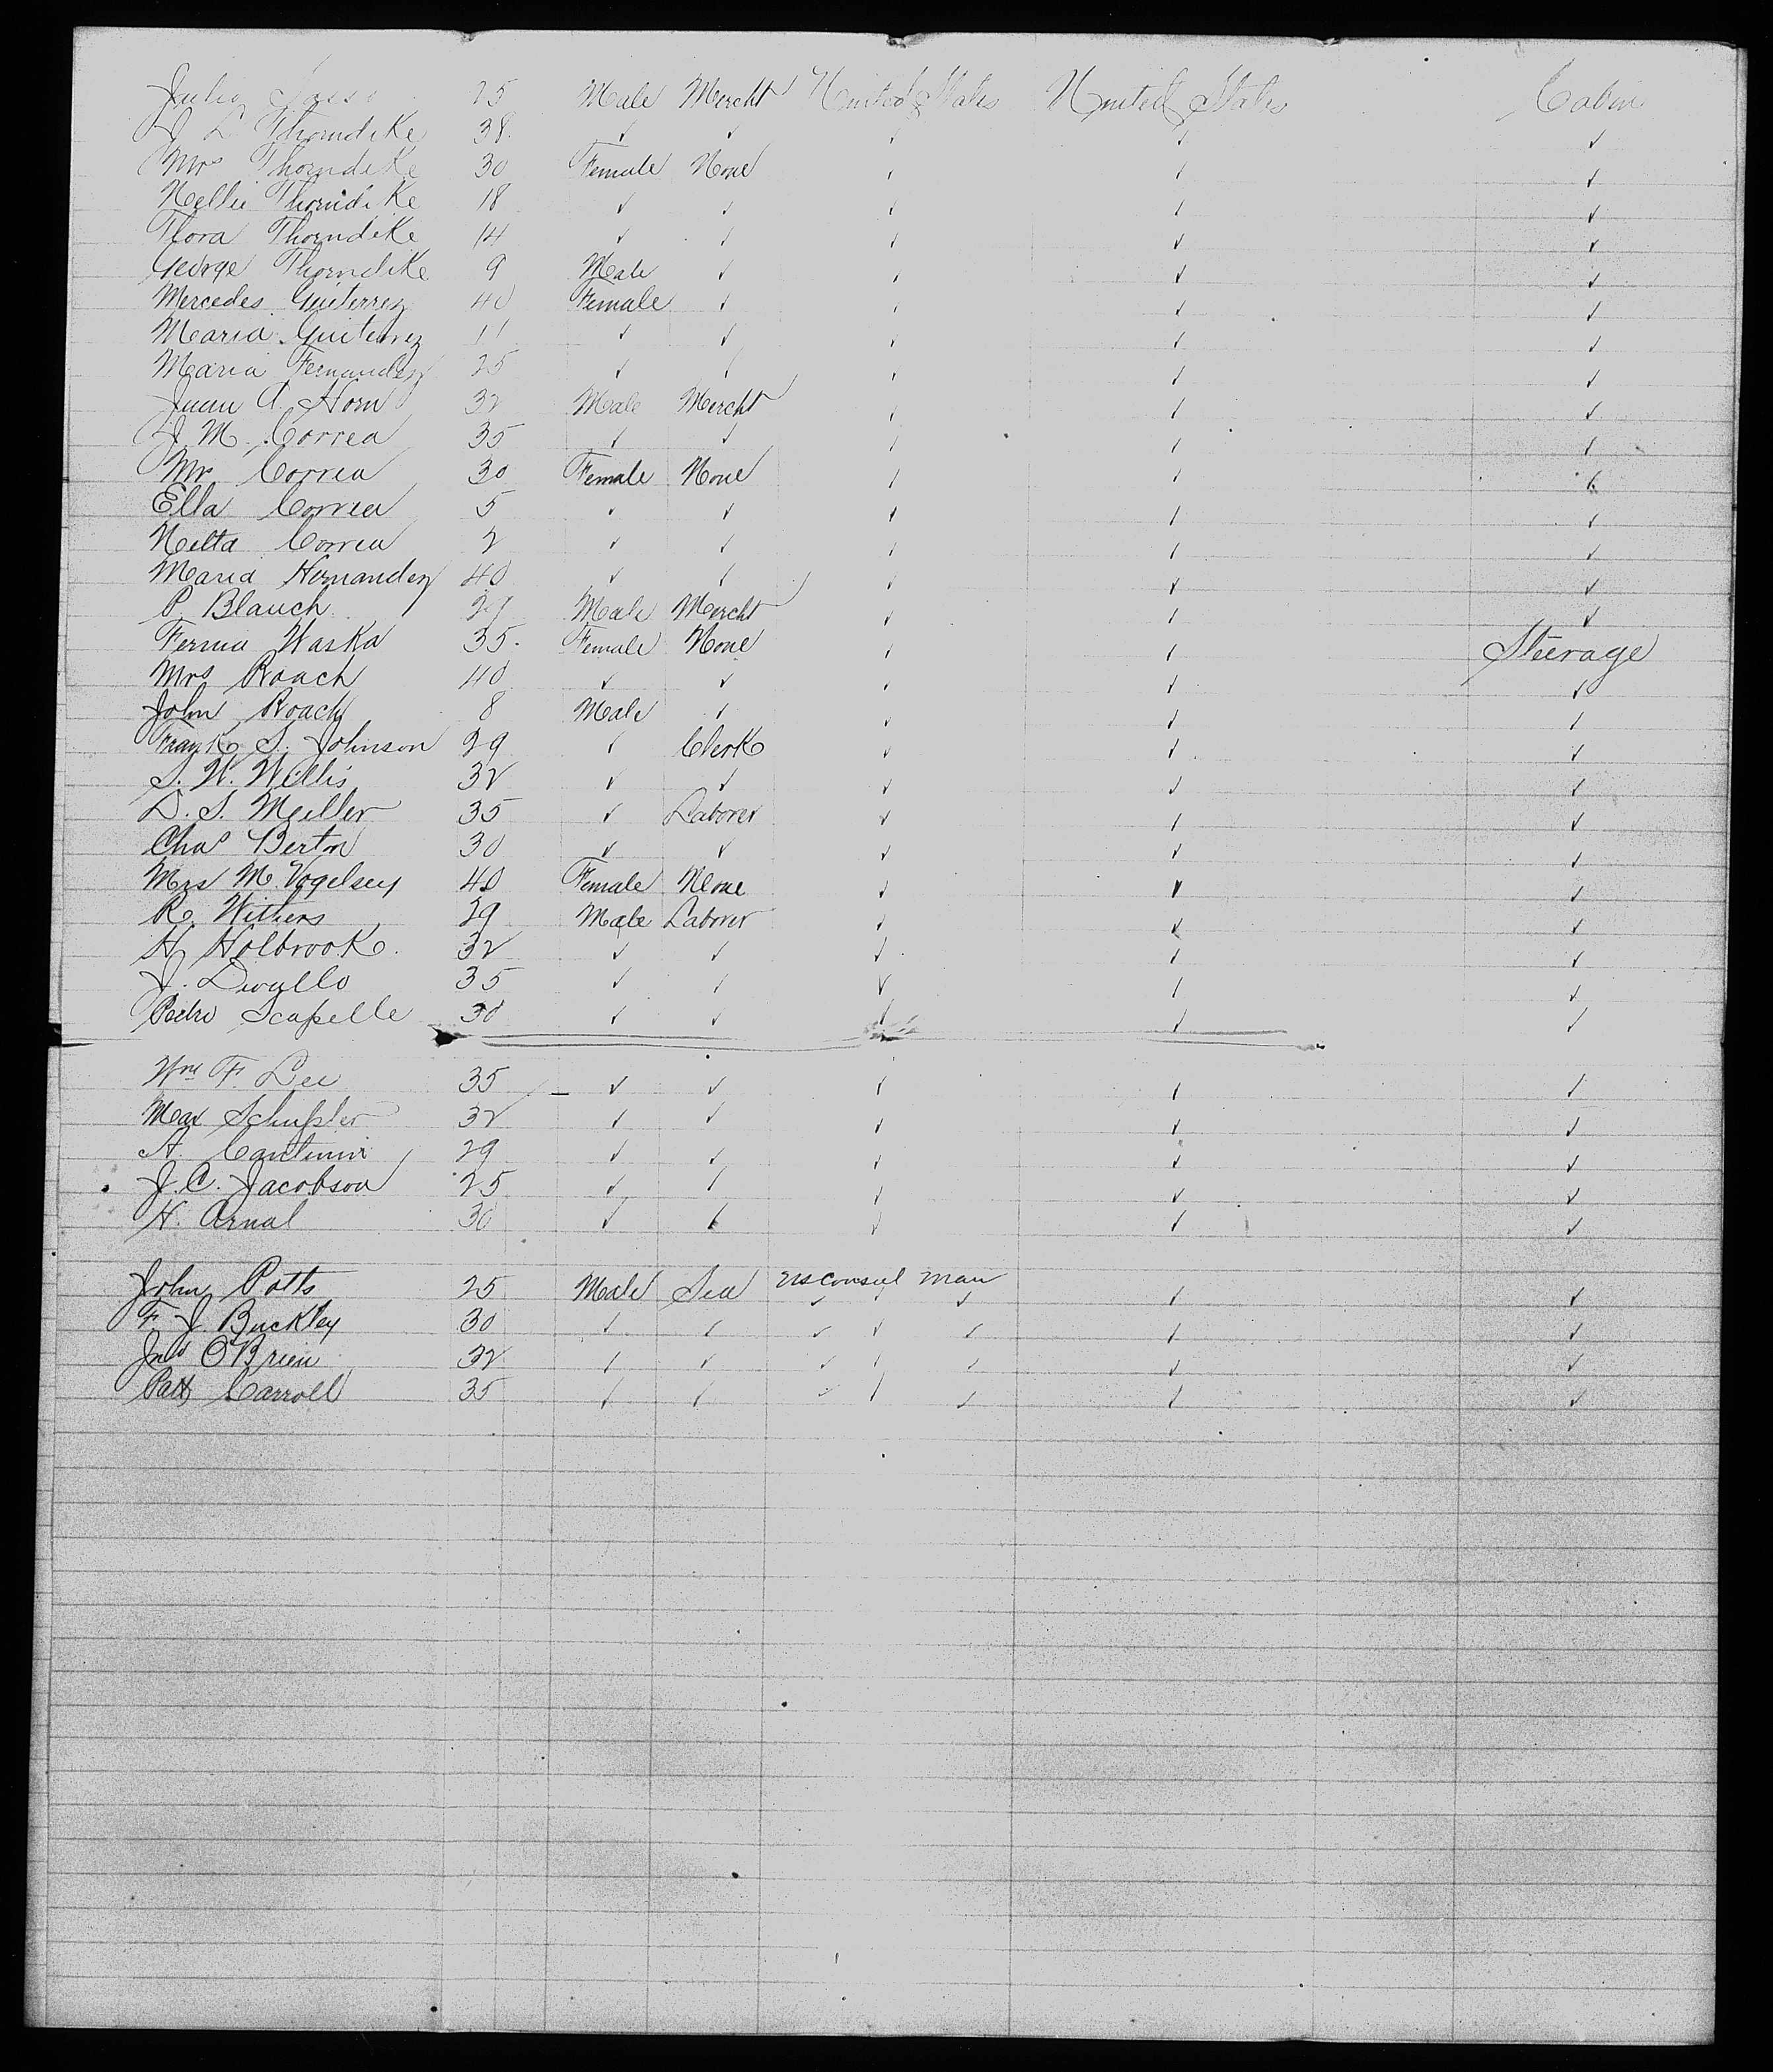 Julio Tasso 25 Male Mercht United States United States Cabin
J L Thorndike 38. ✓ ✓ ✓ ✓ ✓
Mrs Thorndike 30 Female None ✓ ✓ ✓
Nellie Thorndike 18 ✓ ✓ ✓ ✓ ✓
Flora Thorndike 14 ✓ ✓ ✓ ✓ ✓
George Thorndike 9 Male ✓ ✓ ✓ ✓
Mercedes Guiterrez 40 Female ✓ ✓ ✓ ✓
Maria Guiterrez 11 ✓ ✓ ✓ ✓ ✓
Maria Fernandez 25 ✓ ✓ ✓ ✓ ✓
Juan A. Horn 32 Male Mercht ✓ ✓ ✓
J M. Correa 35 ✓ ✓ ✓ ✓ ✓
Mrs Correa 30 Female None ✓ ✓ ✓
Ella Correa 5 ✓ ✓ ✓ ✓ ✓
Netta Correa 2 ✓ ✓ ✓ ✓ ✓
Maria Hernandez 40 ✓ ✓ ✓ ✓ ✓
P. Blauch 27 Male Mercht ✓ ✓ ✓
Waska 35. Female None ✓ ✓ Steerage
Mrs Roach 40 ✓ ✓ ✓ ✓ ✓
John Roach 8 Male ✓ ✓ ✓ ✓
Frank S. Johnson 29 ✓ Clerk ✓ ✓ ✓
S. W. Willis 32 ✓ ✓ ✓ ✓ ✓
D. S. Meiller 35 ✓ Laborer ✓ ✓ ✓
Chas Berton 30 ✓ ✓ ✓ ✓ ✓
Mrs M. Vogelsey 40 Female None ✓ ✓ ✓
R. Withers 29 Male Laborer ✓ ✓ ✓
H Holbrook. 32 ✓ ✓ ✓ ✓ ✓
J. 35 ✓ ✓ ✓ ✓ ✓
Pedro Scapelle 30 ✓ ✓ ✓ ✓ ✓
Wm F. Lee 35 ✓ ✓ ✓ ✓ ✓
Max Schussler 32 ✓ ✓ ✓ ✓ ✓
A. 29 ✓ ✓ ✓ ✓ ✓
J. C. Jacobson 25 ✓ ✓ ✓ ✓ ✓
H. Arnal 30 ✓ ✓ ✓ ✓ ✓
John Potts 25 Male Sea US Consul man ✓ ✓
F. J. Buckley 30 ✓ ✓ ✓ ✓ ✓ ✓ ✓
Jno O'Brien 32 ✓ ✓ ✓ ✓ ✓ ✓ ✓
Patk Carroll 35 ✓ ✓ ✓ ✓ ✓ ✓ ✓